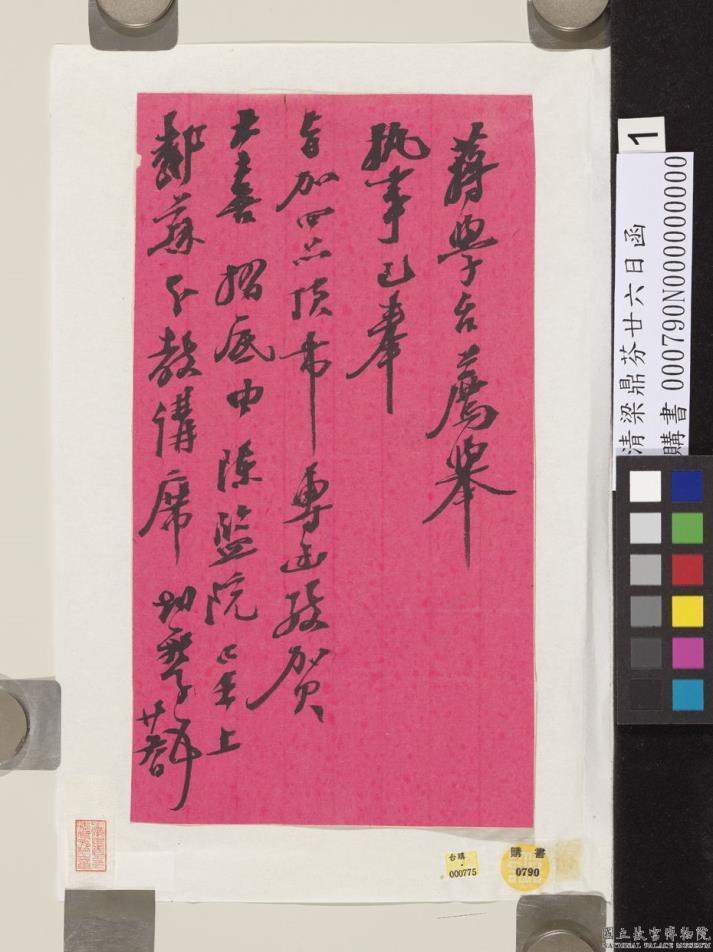 蔣學台薦舉
執事已奉
旨加四品頂帶專函致賀
大喜摺底由陳監院呈上
鄰蘇分教講席
廿六日
清梁鼎芬廿六日函
購書000790N000000000
1
台購
000775
購書
0790
國立故宮博物院
NATIONAL PALACE MUSEUM